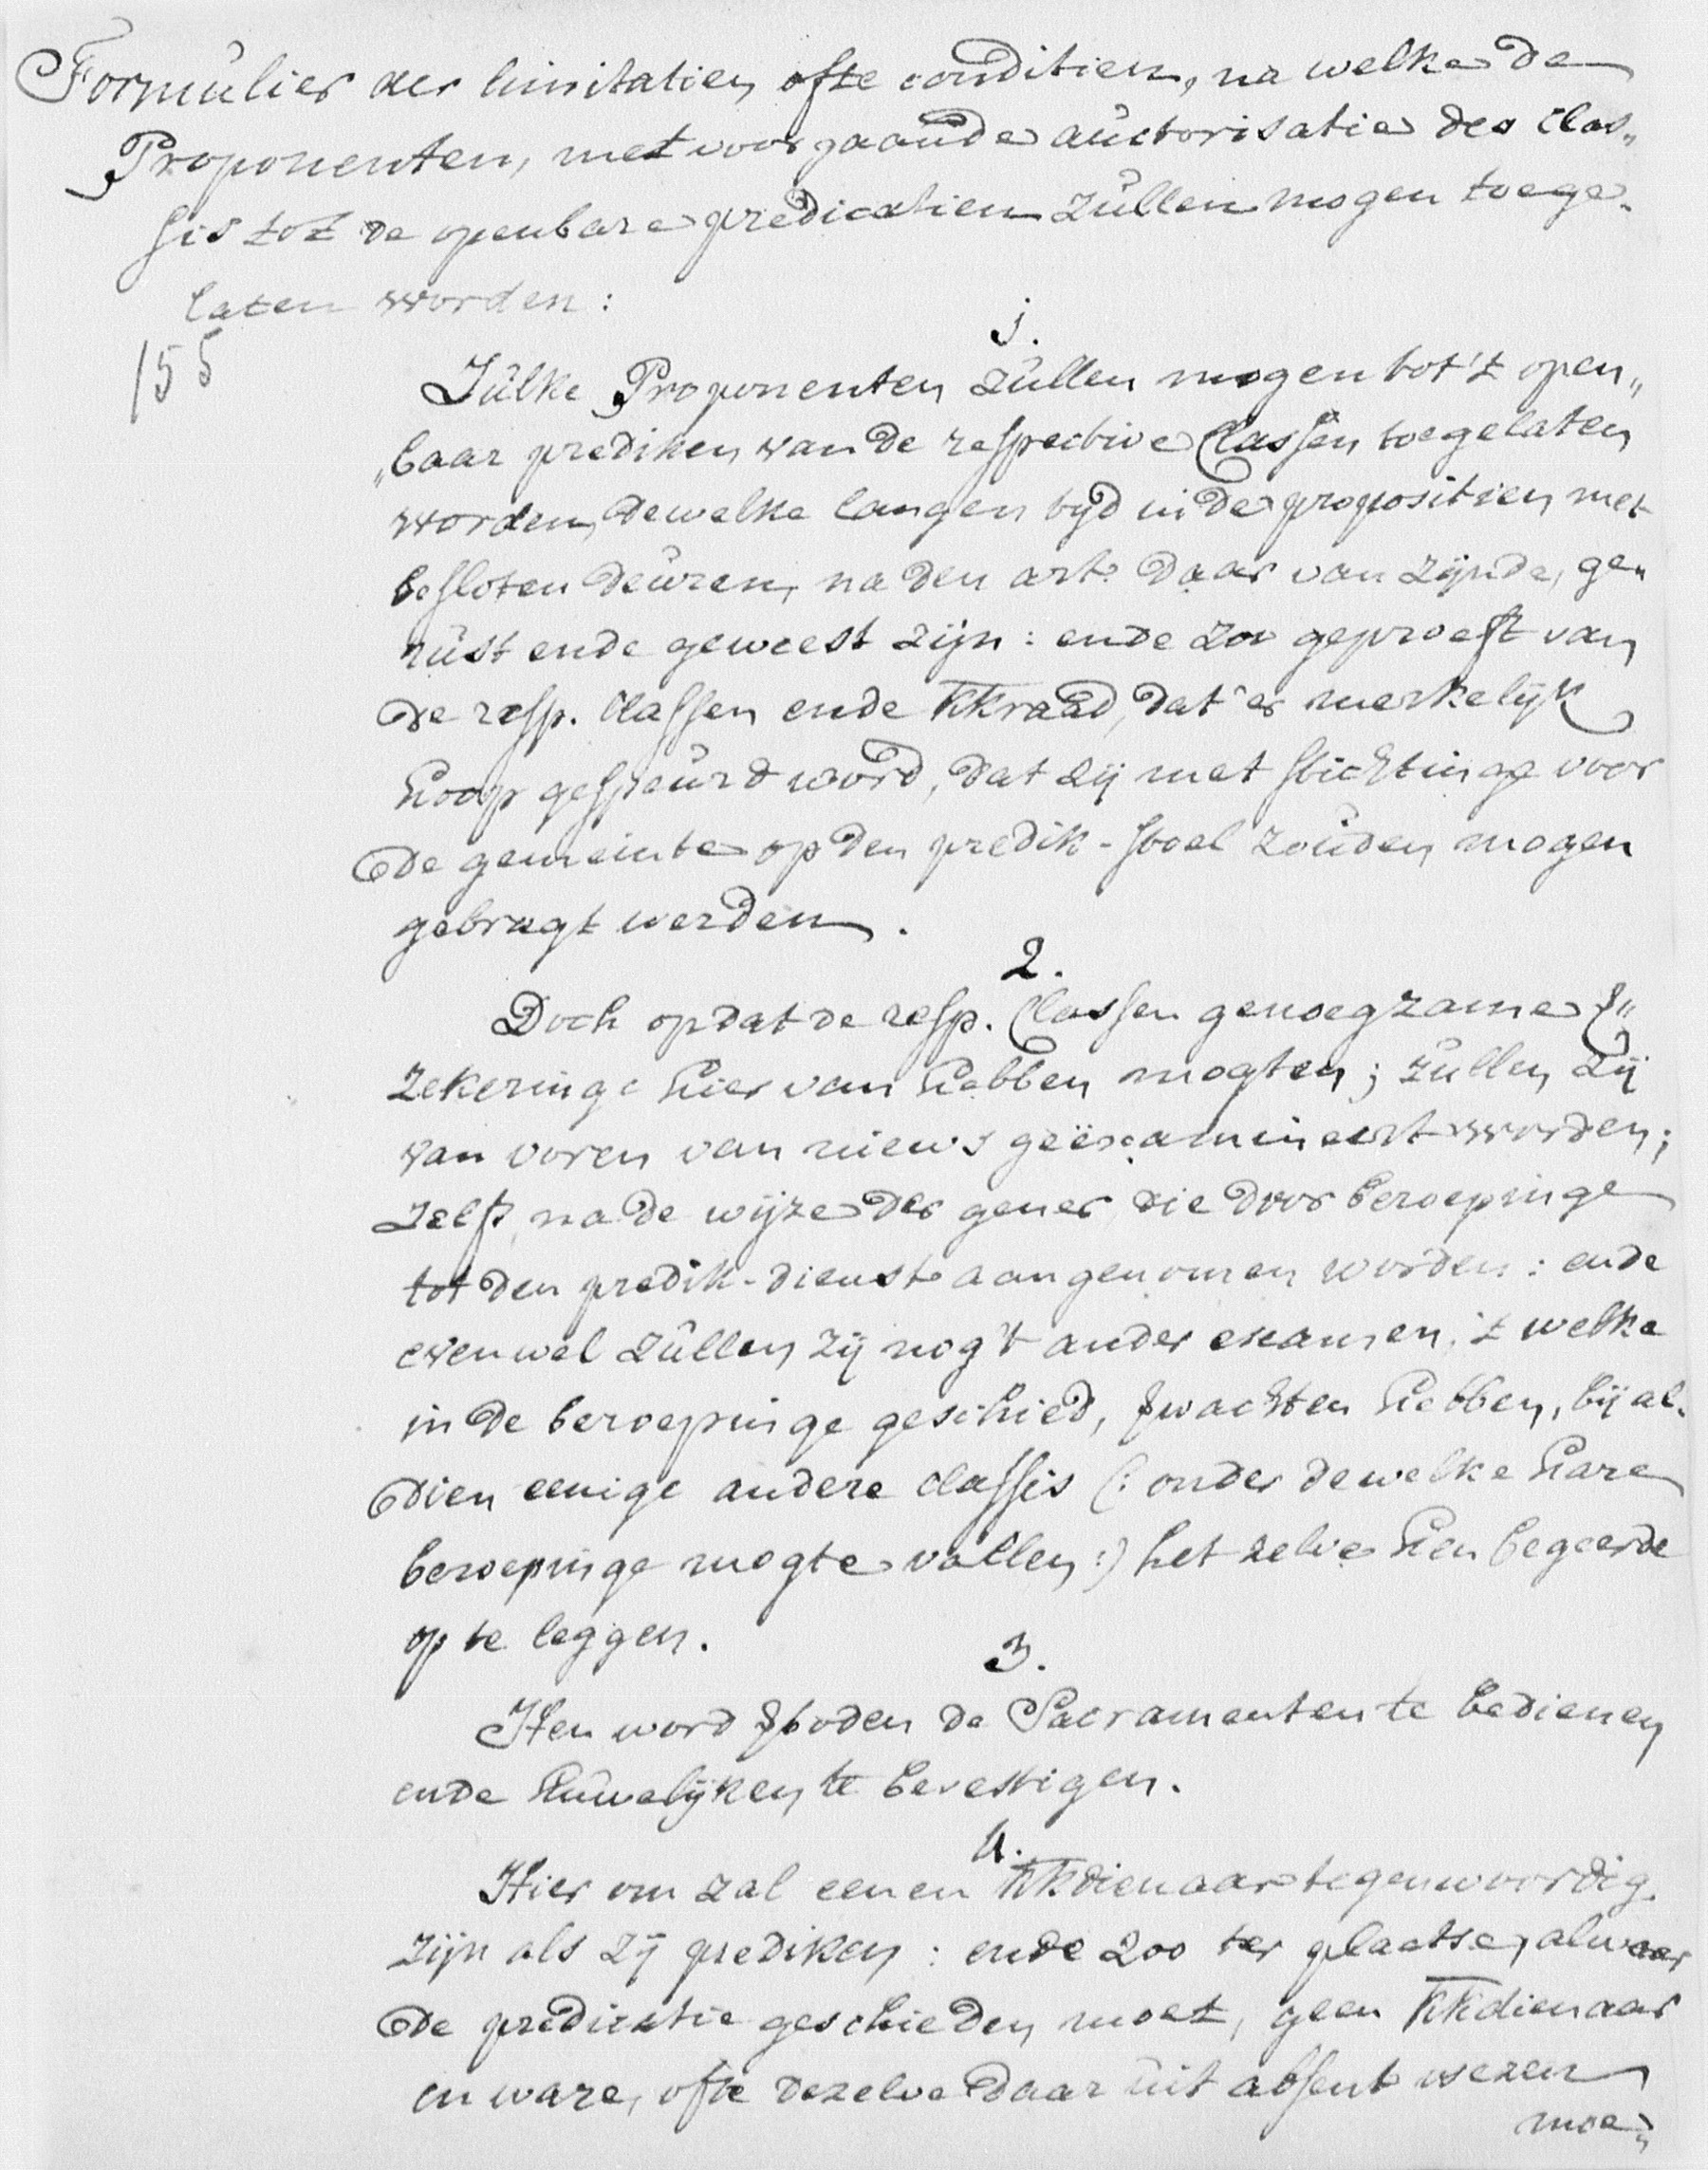 Formulier der limitatien ofte conditien, na welke de
Proponenten, met voorgaande auctorisatie des Clas„
sis tot de openbare predicatien zullen mogen toege„
laten worden:
1.
155
Zulke Proponenten zullen mogen tot 't open„
„baar prediken van de respective Classen toegelaten
worden, dewelke langen tyd in de propositien met
besloten deuren, na den art. daar van zijnde, ge„
rust ende geweest zijn: ende zoo geproeft van
de resp. Classen ende Kkraad, dat 'er merkelijk
hoop gespeurd word, dat zij met stichtinge voor
de gemeinte op den predik-stoel zouden mogen
gebragt werden.
2.
Doch opdat de resp. Classen genoegzame v„
zekeringe hier van hebben mogten; zullen zij
van voren van nieuws geëxamineert worden;
zelfs, na de wijze der gener die door beroepinge
tot den predik-dienst aangenomen worden: ende
evenwel zullen zij nog 't ander examen, 't welke
in de beroepinge geschied, vwachten hebben, bij al„
dien eenige andere classis (: onder dewelke hare
beroepinge mogte vallen :) het zelve hen begeerde
op te leggen.
3.
Hen word vboden de Sacramenten te bedienen
ende huwelijken te bevestigen.
4.
Hier om zal eenen Kkdienaar tegenwoordig
zijn als zij prediken: ende zoo ter plaatse, alwaar
de predicatie geschieden moet, geen Kkdienaar
en ware, ofte dezelve daar uit absent wezen
moe„